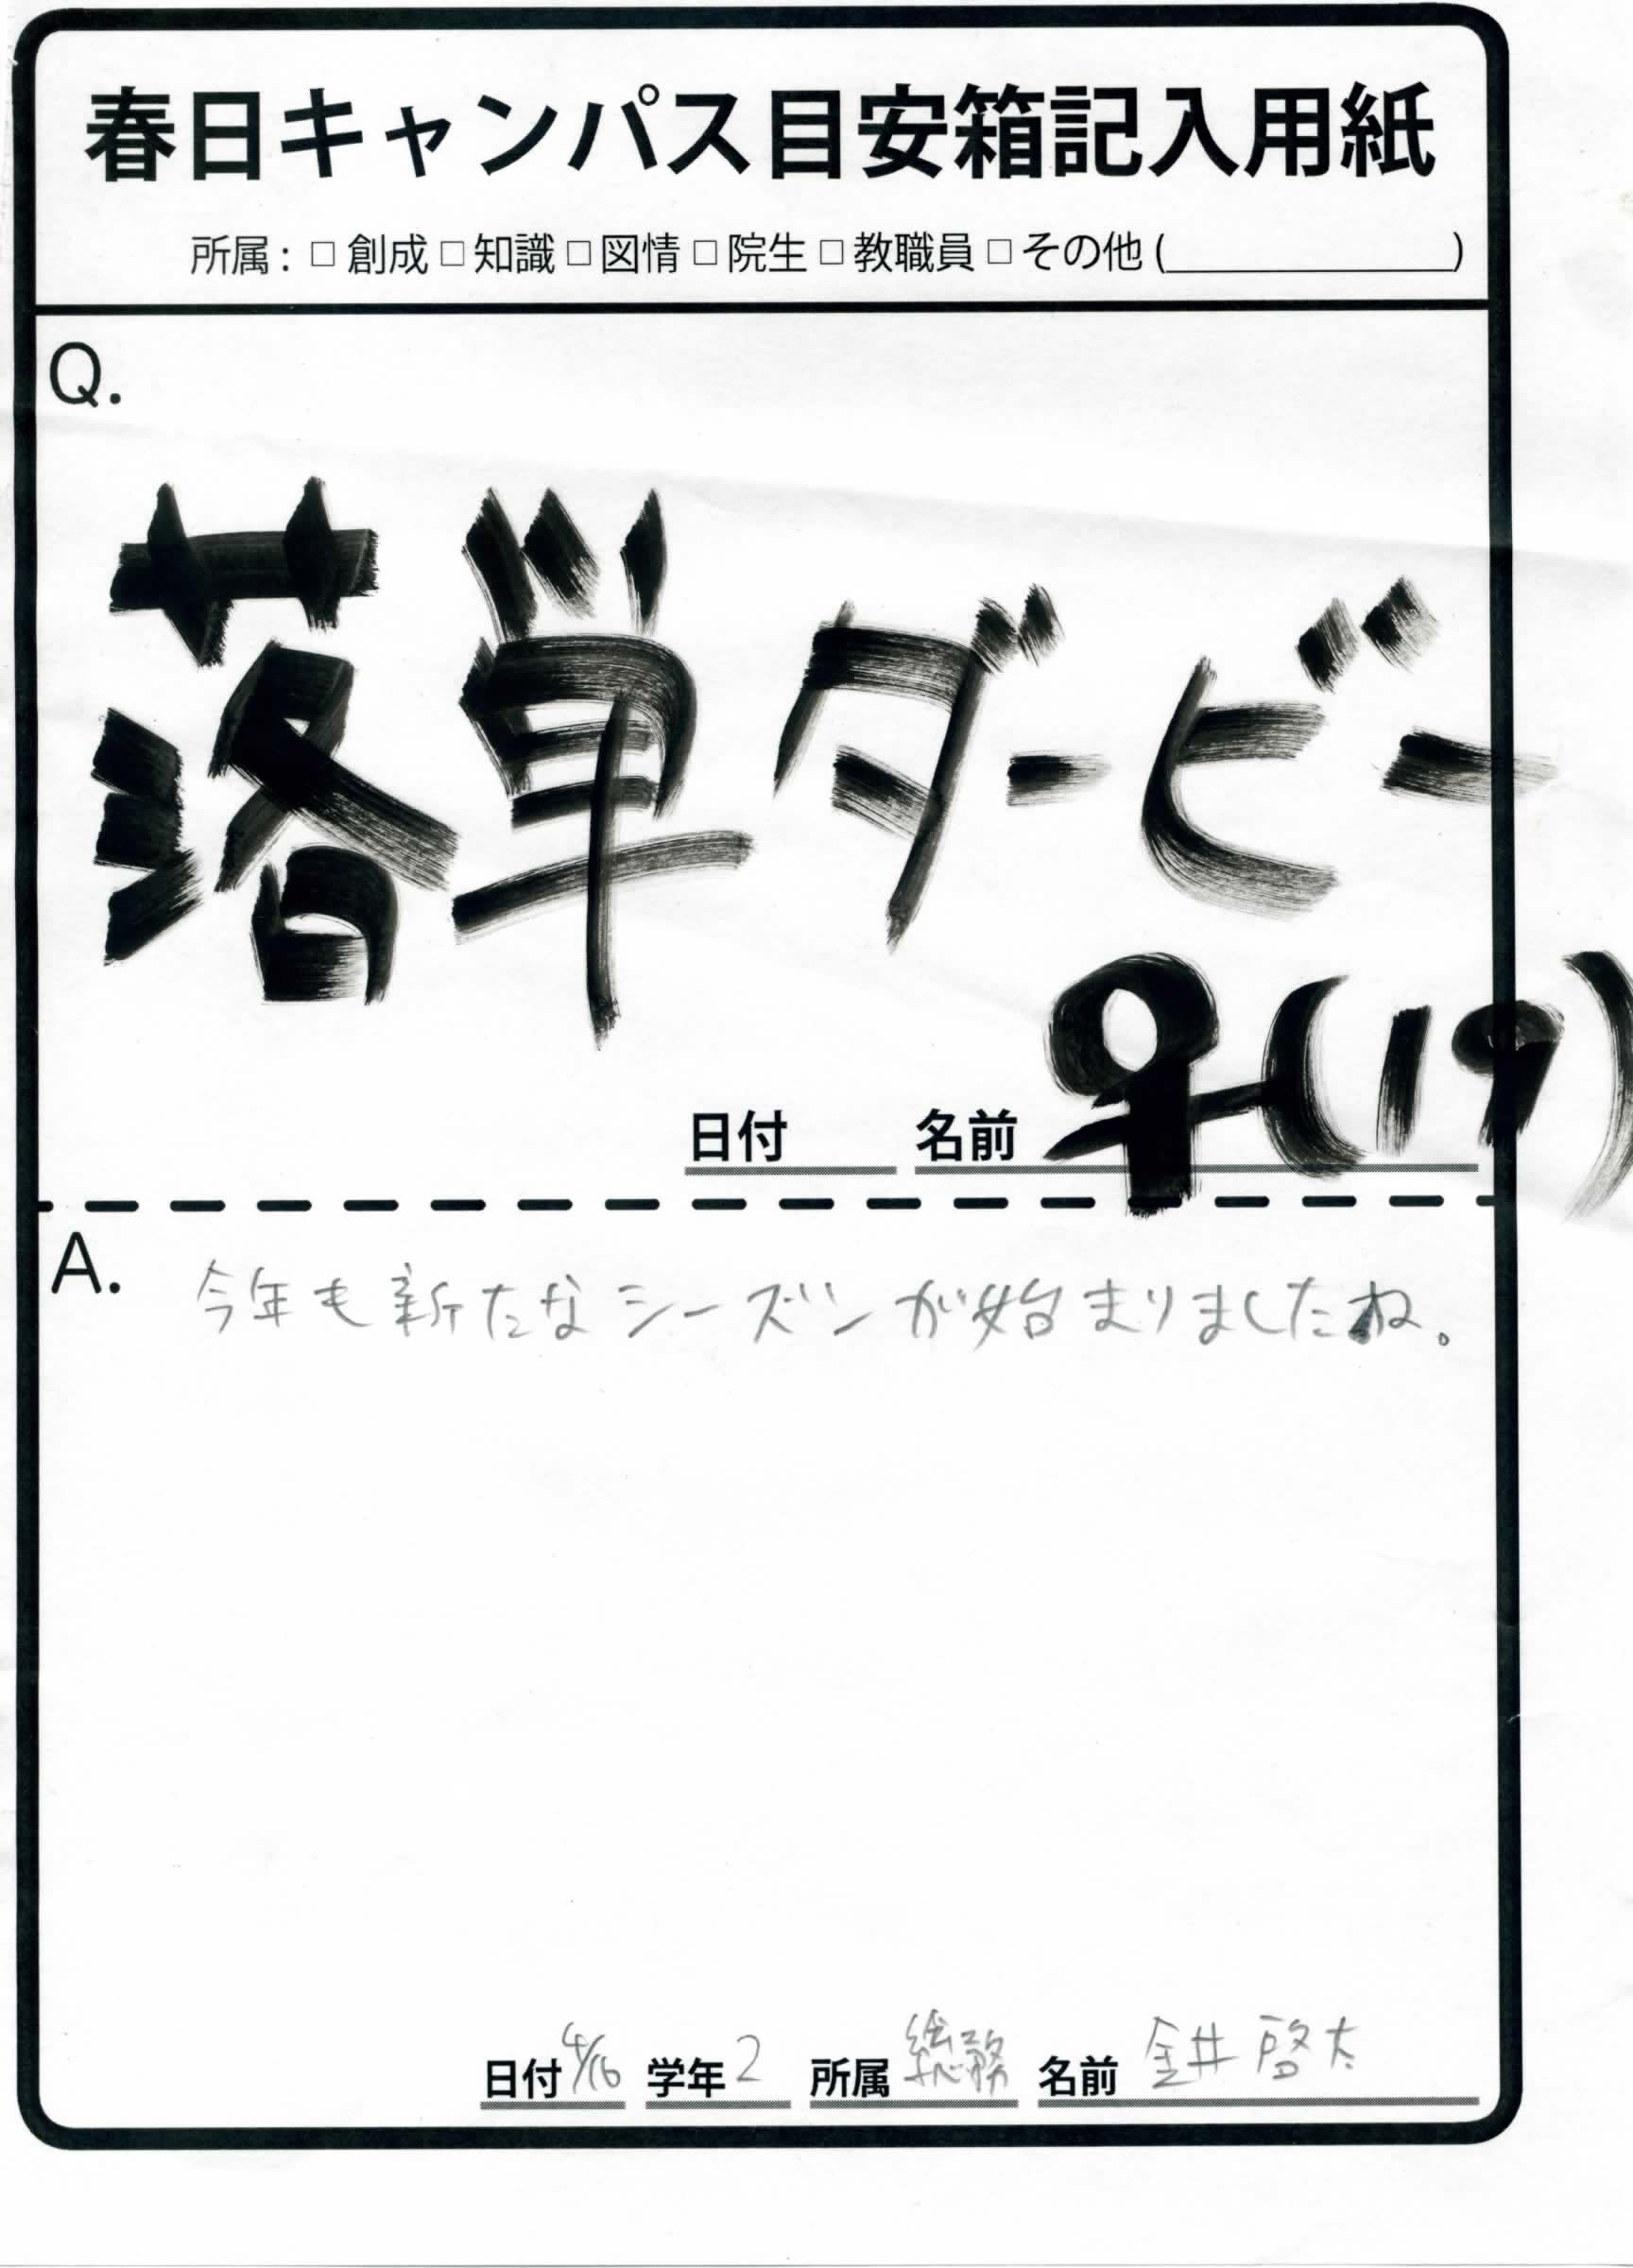 春日キャンパス目安箱記入用紙
所属 : □ 創成 □ 知識 □ 図情 □ 院生 □ 教職員 □ その他 ( )
Q.
落単ダービー
日付 名前 ♀(19)
A. 今年も新たなシーズンが始まりましたね。
日付 4/16 学年 2 所属 総務 名前 金井 啓太